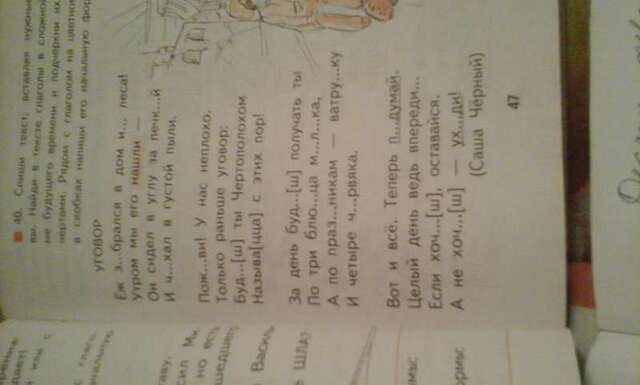 40. Спиши текст, вставляя нужные
вы. Найди в тексте глаголы в сложной
ме будущего времени и подчеркни их
чертами. Рядом с глаголом на цветной
в скобках напиши его начальную фор
УГОВОР
Ёж з...брался в дом и... леса!
Утром мы его нашли —
Он сидел в углу за печк...й
И ч...хал в густой пыли.
Пож...ви! У нас неплохо.
Только раньше уговор:
Буд...[ш] ты Чертополохом
Называ[цца] с этих пор!
За день буд...[ш] получать ты
По три блю...ца м...л...ка,
А по праз...никам — ватру...ку
И четыре ч...рвяка.
Вот и всё. Теперь п...думай.
Целый день ведь впереди...
Если хоч...[ш], оставайся.
А не хоч...[ш] — ух...ди!
(Саша Чёрный)
47